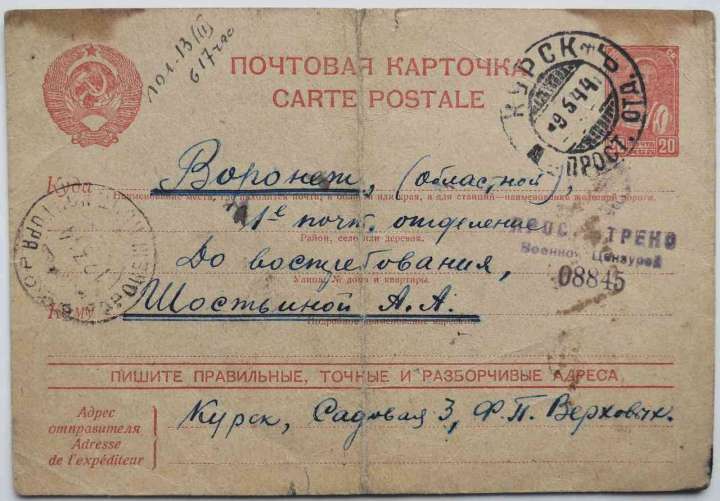 101-13(II)
617-90
ПОЧТОВАЯ КАРТОЧКА
CARTE POSTALE
КУРСК
9 5 44
ПРОСТ. ОТД.
20
Куда Воронеж, (областной),
Наименование места, где находится почта, и области или края, а для станции—наименование железной дороги.
1е почт. отделение
Район, село или деревня.
До востребования,
Улица, № дома и квартиры.
Кому Шостьиной А.А.
Подробное наименование адресата
ПРОСМОТРЕНО
Военной Цензурой
08845
ПИШИТЕ ПРАВИЛЬНЫЕ, ТОЧНЫЕ И РАЗБОРЧИВЫЕ АДРЕСА
Адрес
отправителя
Adresse
de l'expéditeur
Курск, Садовая 3, Ф.П. Верховых.